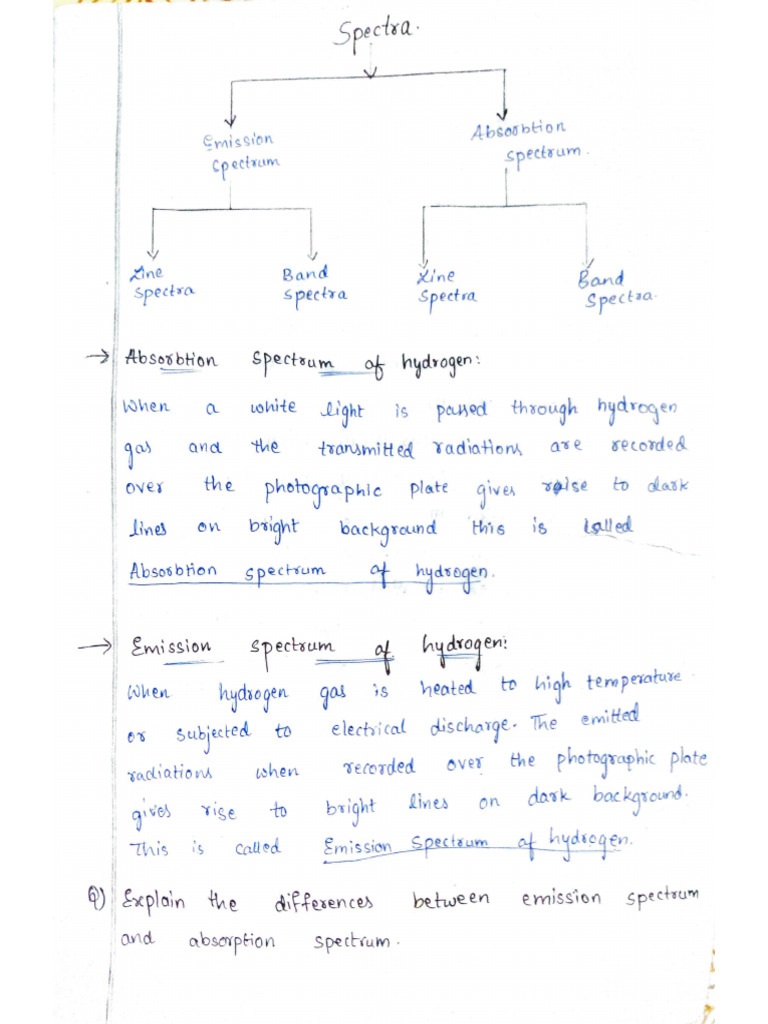 Spectra.
Emission
Spectrum
Absorbtion
Spectrum.
Line
Spectra
Band
Spectra
Line
Spectra
Band
Spectra.
→ Absorbtion Spectrum of hydrogen:
When a white light is passed through hydrogen
gas and the transmitted radiations are recorded
over the photographic plate gives raise to dark
lines on bright background this is called
Absorbtion spectrum of hydrogen.
→ Emission spectrum of hydrogen:
When hydrogen gas is heated to high temperature
or subjected to electrical discharge. The emitted
radiations when recorded over the photographic plate
gives rise to bright lines on dark background.
This is called Emission Spectrum of hydrogen.
Q) Explain the differences between emission spectrum
and absorption spectrum.